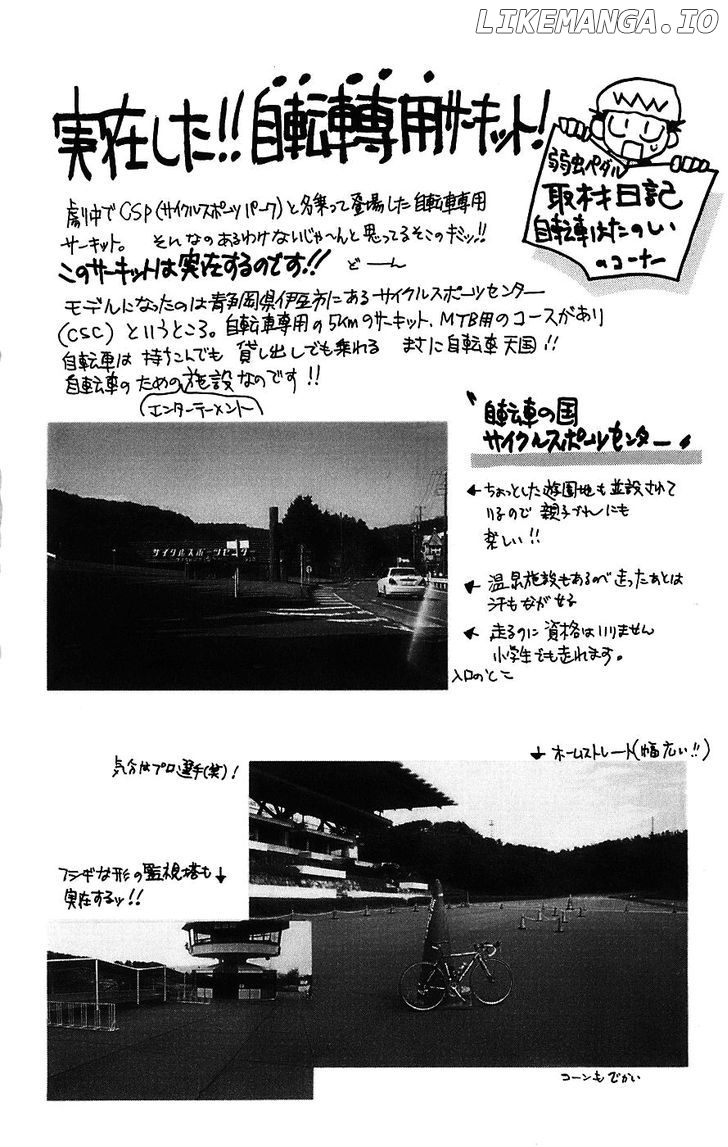 LIKEMANGA.IO
実在した!!自転車専用サーキット!
弱虫ペダル
取材日記
自転車はたのしい
のコーナー
劇中でCSP(サイクルスポーツパーク)と名乗って登場した自転車専用
サーキット。 そんなのあるわけないじゃ〜んと思ってるそこのキミッ!!
このサーキットは実在するのです!! どーん
モデルになったのは静岡県伊豆市にあるサイクルスポーツセンター
(CSC)というところ。自転車専用の5kmのサーキット、MTB用のコースがあり
自転車は持ちこんでも貸し出しでも乗れる まさに自転車天国!!
自転車のための施設なのです!!
(エンターテーメント)
"自転車の国
サイクルスポーツセンター"
←ちょっとした遊園地も並設されて
いるので親子づれにも
楽しい!!
←温泉施設もあるので走ったあとは
汗もながせる
←走るのに資格はいりません
小学生でも走れます。
入口のとこ
サイクルスポーツセンター
↓ホームストレート(幅広い!!)
気分はプロ選手(笑)!
フシギな形の監視塔も↓
実在するッ!!
コーンもでかい